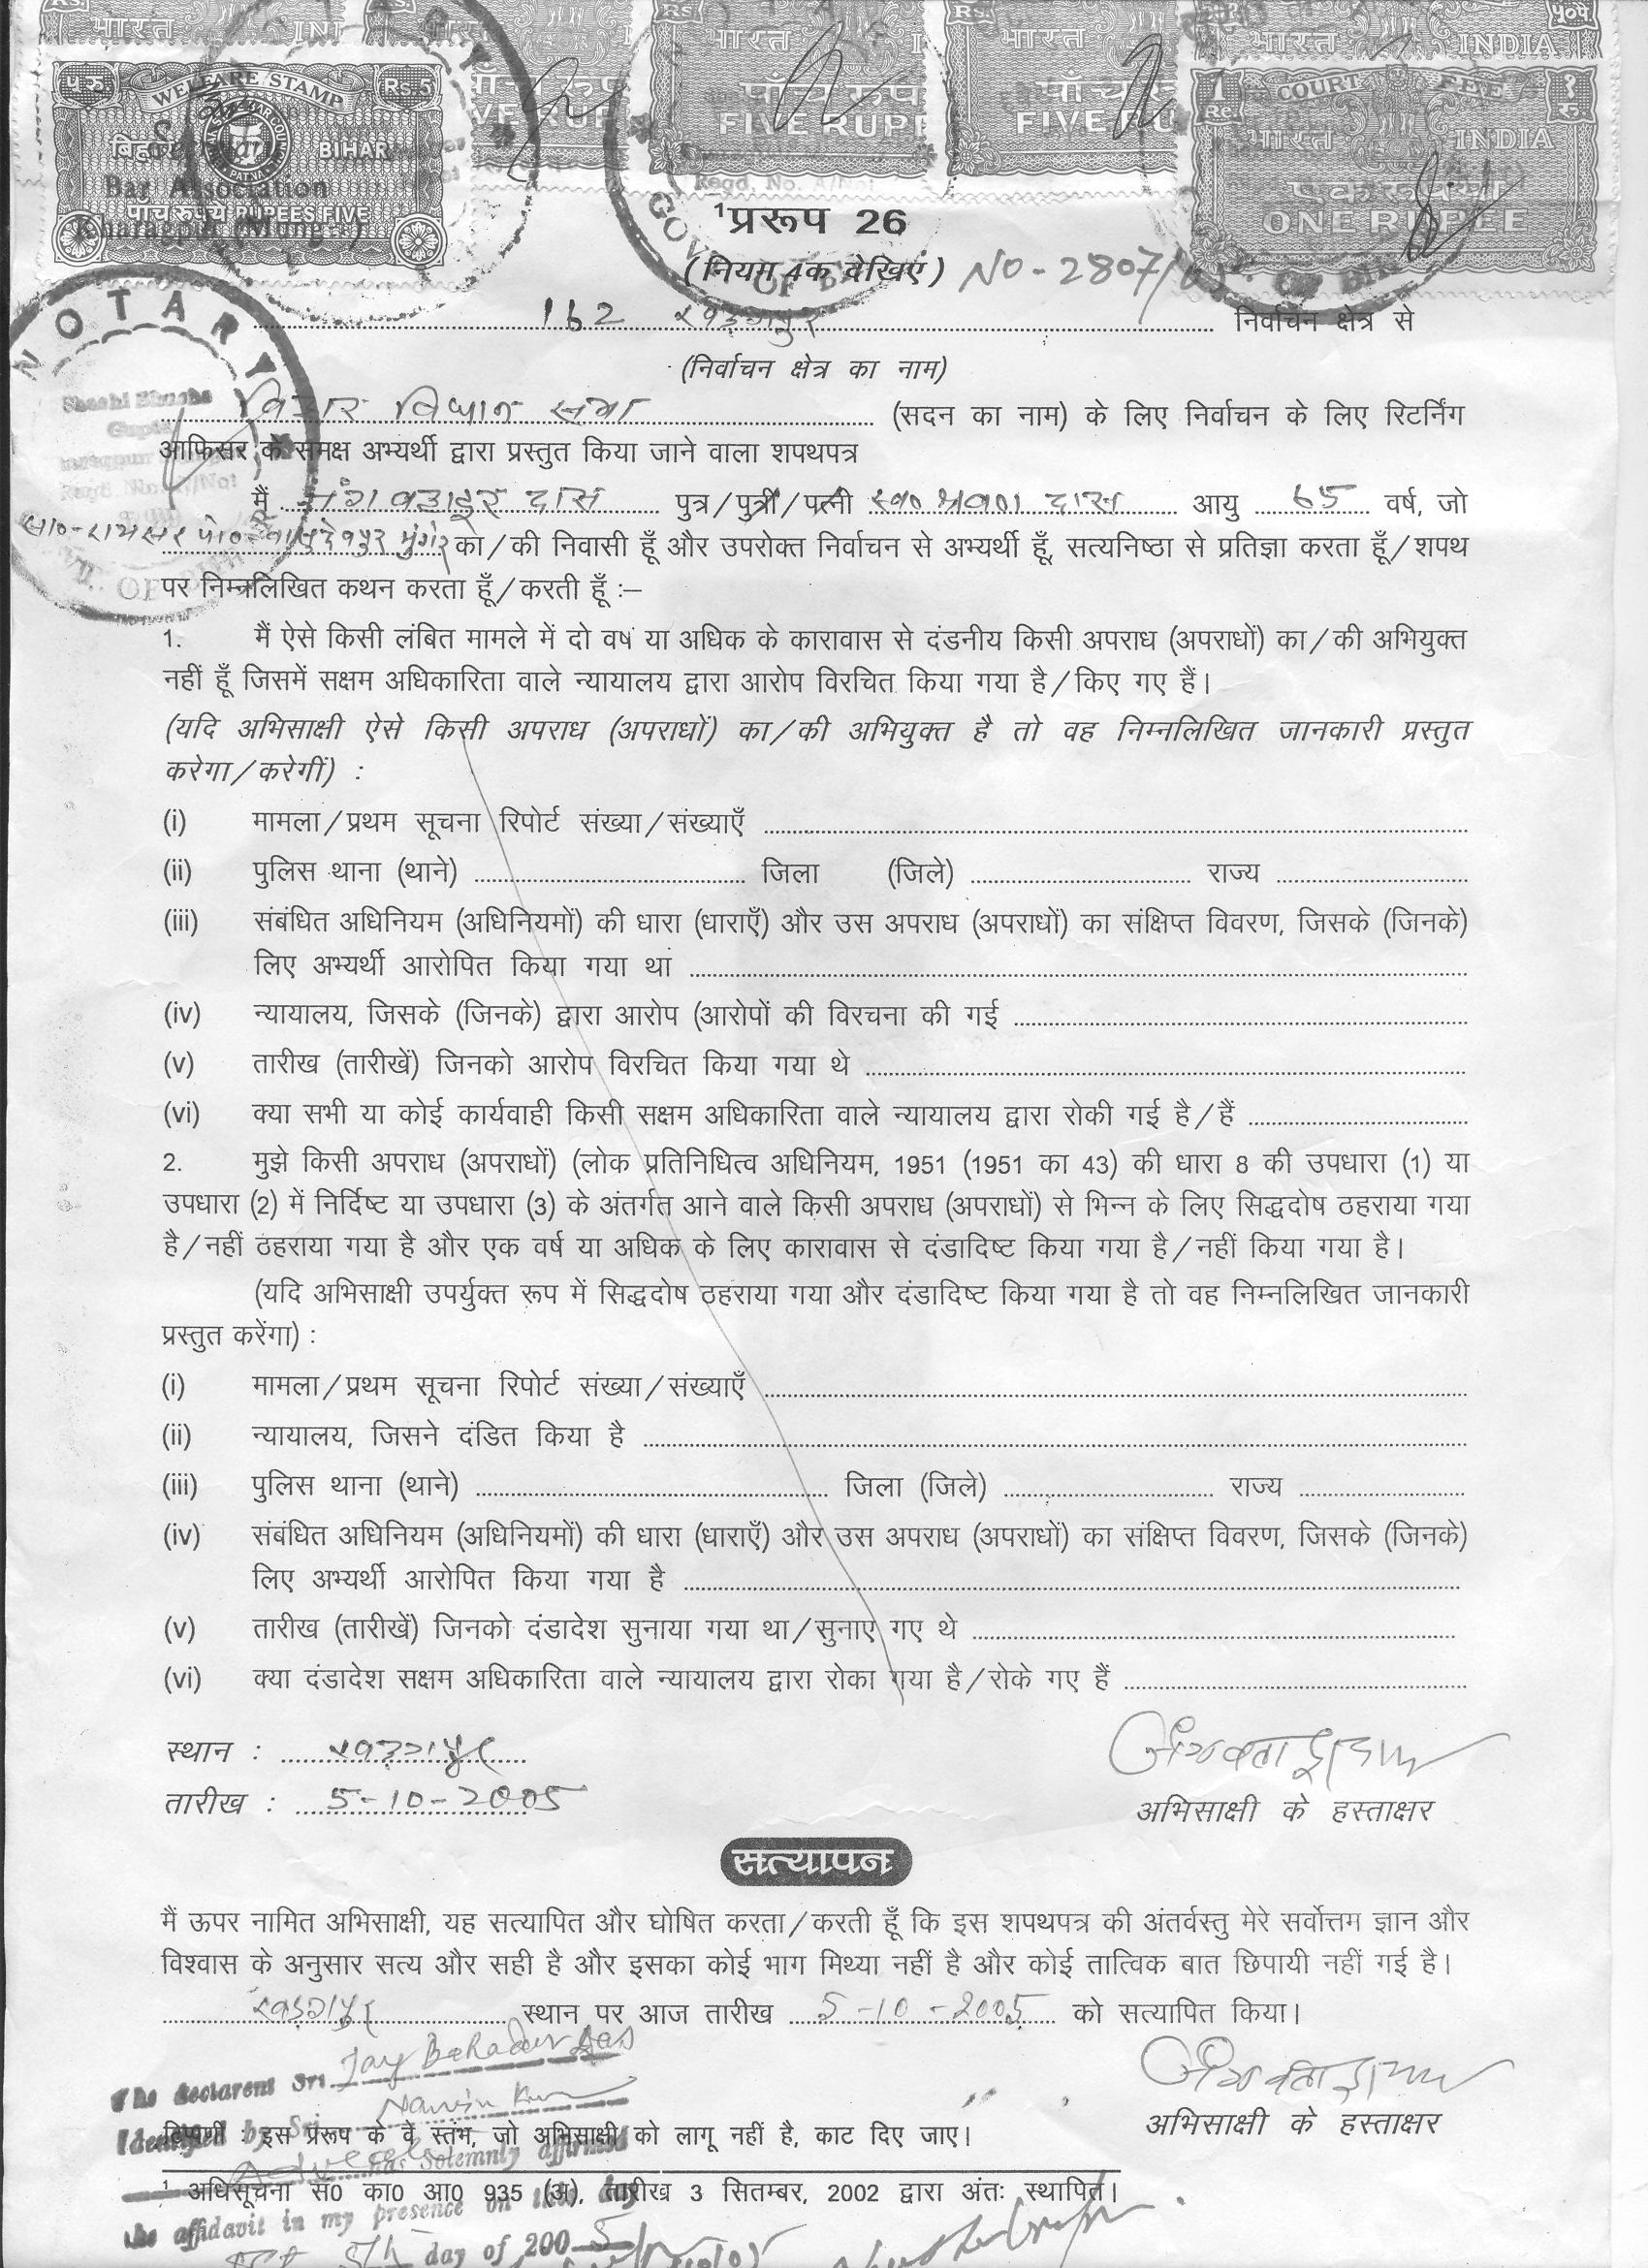 भारत INDIA
५ रु. WELFARE STAMP Rs. 5
बिहार BIHAR
Bar Association
पाँच रुपये RUPEES FIVE
Kharagpur (Mung
FIVE RUPE
FIVE RU
1 Re. COURT FEE १ रु.
भारत INDIA
एक रुपया
ONE RUPEE
¹प्ररूप 26
(नियम 4क देखिए) NO-2807/05
162 खड़गपुर निर्वाचन क्षेत्र से
(निर्वाचन क्षेत्र का नाम)
NOTARY
बिहार विधान सभा (सदन का नाम) के लिए निर्वाचन के लिए रिटर्निंग
आफिसर के समक्ष अभ्यर्थी द्वारा प्रस्तुत किया जाने वाला शपथपत्र
मैं बहादुर दास पुत्र/पुत्री/पत्नी स्व० श्रवण दास आयु 65 वर्ष, जो
सा०-रामसर पो०-वासुदेवपुर मुंगेर का/की निवासी हूँ और उपरोक्त निर्वाचन से अभ्यर्थी हूँ, सत्यनिष्ठा से प्रतिज्ञा करता हूँ/शपथ
पर निम्नलिखित कथन करता हूँ/करती हूँ :–
1. मैं ऐसे किसी लंबित मामले में दो वर्ष या अधिक के कारावास से दंडनीय किसी अपराध (अपराधों) का/की अभियुक्त
नहीं हूँ जिसमें सक्षम अधिकारिता वाले न्यायालय द्वारा आरोप विरचित किया गया है/किए गए हैं।
(यदि अभिसाक्षी ऐसे किसी अपराध (अपराधों) का/की अभियुक्त है तो वह निम्नलिखित जानकारी प्रस्तुत
करेगा/करेगीं) :
(i) मामला/प्रथम सूचना रिपोर्ट संख्या/संख्याएँ
(ii) पुलिस थाना (थाने) जिला (जिले) राज्य
(iii) संबंधित अधिनियम (अधिनियमों) की धारा (धाराएँ) और उस अपराध (अपराधों) का संक्षिप्त विवरण, जिसके (जिनके)
लिए अभ्यर्थी आरोपित किया गया था
(iv) न्यायालय, जिसके (जिनके) द्वारा आरोप (आरोपों की विरचना की गई
(v) तारीख (तारीखें) जिनको आरोप विरचित किया गया थे
(vi) क्या सभी या कोई कार्यवाही किसी सक्षम अधिकारिता वाले न्यायालय द्वारा रोकी गई है/हैं
2. मुझे किसी अपराध (अपराधों) (लोक प्रतिनिधित्व अधिनियम, 1951 (1951 का 43) की धारा 8 की उपधारा (1) या
उपधारा (2) में निर्दिष्ट या उपधारा (3) के अंतर्गत आने वाले किसी अपराध (अपराधों) से भिन्न के लिए सिद्धदोष ठहराया गया
है/नहीं ठहराया गया है और एक वर्ष या अधिक के लिए कारावास से दंडादिष्ट किया गया है/नहीं किया गया है।
(यदि अभिसाक्षी उपर्युक्त रूप में सिद्धदोष ठहराया गया और दंडादिष्ट किया गया है तो वह निम्नलिखित जानकारी
प्रस्तुत करेंगा) :
(i) मामला/प्रथम सूचना रिपोर्ट संख्या/संख्याएँ
(ii) न्यायालय, जिसने दंडित किया है
(iii) पुलिस थाना (थाने) जिला (जिले) राज्य
(iv) संबंधित अधिनियम (अधिनियमों) की धारा (धाराएँ) और उस अपराध (अपराधों) का संक्षिप्त विवरण, जिसके (जिनके)
लिए अभ्यर्थी आरोपित किया गया है
(v) तारीख (तारीखें) जिनको दंडादेश सुनाया गया था/सुनाए गए थे
(vi) क्या दंडादेश सक्षम अधिकारिता वाले न्यायालय द्वारा रोका गया है/रोके गए हैं
स्थान : खड़गपुर
तारीख : 5-10-2005
अभिसाक्षी के हस्ताक्षर
सत्यापन
मैं ऊपर नामित अभिसाक्षी, यह सत्यापित और घोषित करता/करती हूँ कि इस शपथपत्र की अंतर्वस्तु मेरे सर्वोत्तम ज्ञान और
विश्वास के अनुसार सत्य और सही है और इसका कोई भाग मिथ्या नहीं है और कोई तात्विक बात छिपायी नहीं गई है।
खड़गपुर स्थान पर आज तारीख 5-10-2005 को सत्यापित किया।
The declarent Sri Jay Bahadur Das
Identified by Sri
अभिसाक्षी के हस्ताक्षर
टिप्पणी : इस प्ररूप के वे स्तंभ, जो अभिसाक्षी को लागू नहीं है, काट दिए जाए।
has Solemnly affirmed
¹ अधिसूचना सं0 का0 आ0 935 (अ), तारीख 3 सितम्बर, 2002 द्वारा अंतः स्थापित।
the affidavit in my presence on this day
5th day of 2005